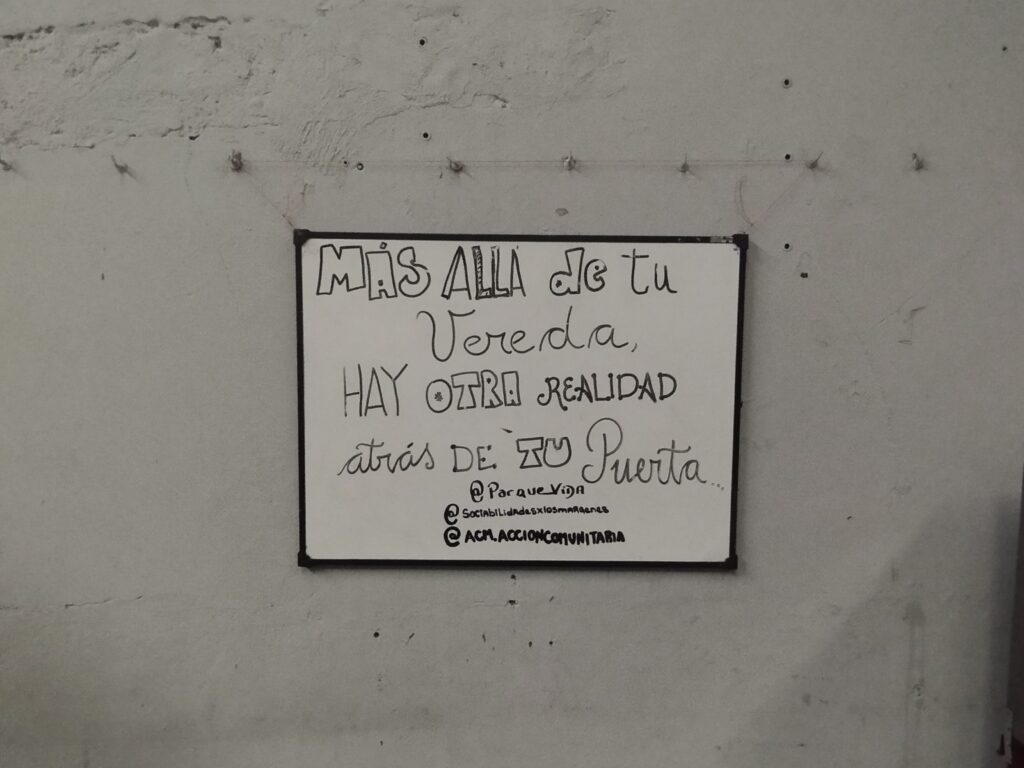 MÁS ALLÁ de tu
Vereda,
HAY OTRA REALIDAD
atrás DE TU Puerta...
@Parque_Vida
@SociabilidadesxlosmaRgenes
@ACM.ACCIONCOMUNITARIA